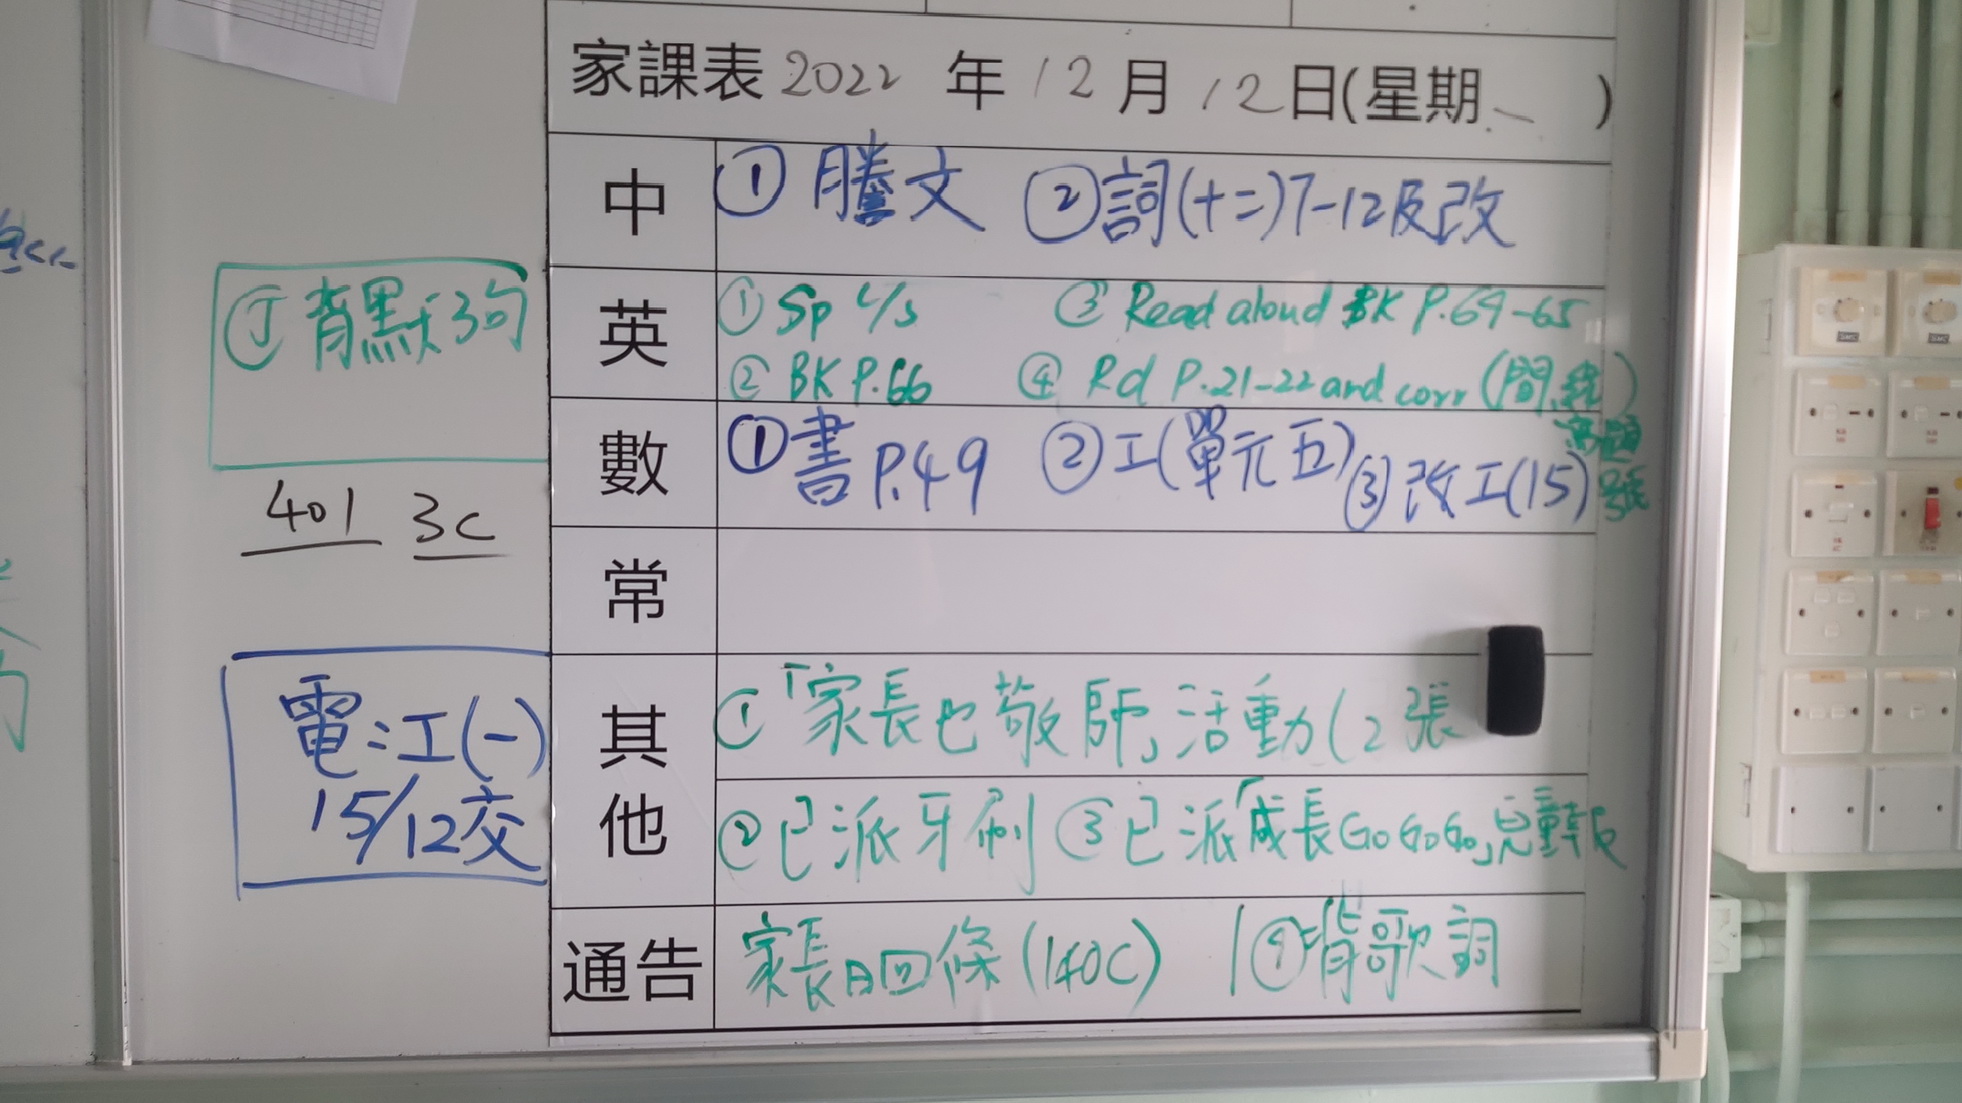 家課表 2022 年 12 月 12 日(星期一)
中 ① 謄文 ② 詞(十二)7-12及改
英 ① Sp L/S ③ Read aloud BK P.64-65
② BK P.66 ④ Rd P.21-22 and corr (間線
寫題
號
數 ① 書 P.49 ② 工(單元五) ③ 改工(15)
常
其他 ①「家長也敬師」活動(2張
② 已派牙刷 ③ 已派「成長GoGoGo」兒童報
通告 家長日回條(140C) ④ 背歌詞
背默3句
401 3C
電:工(一)
15/12交